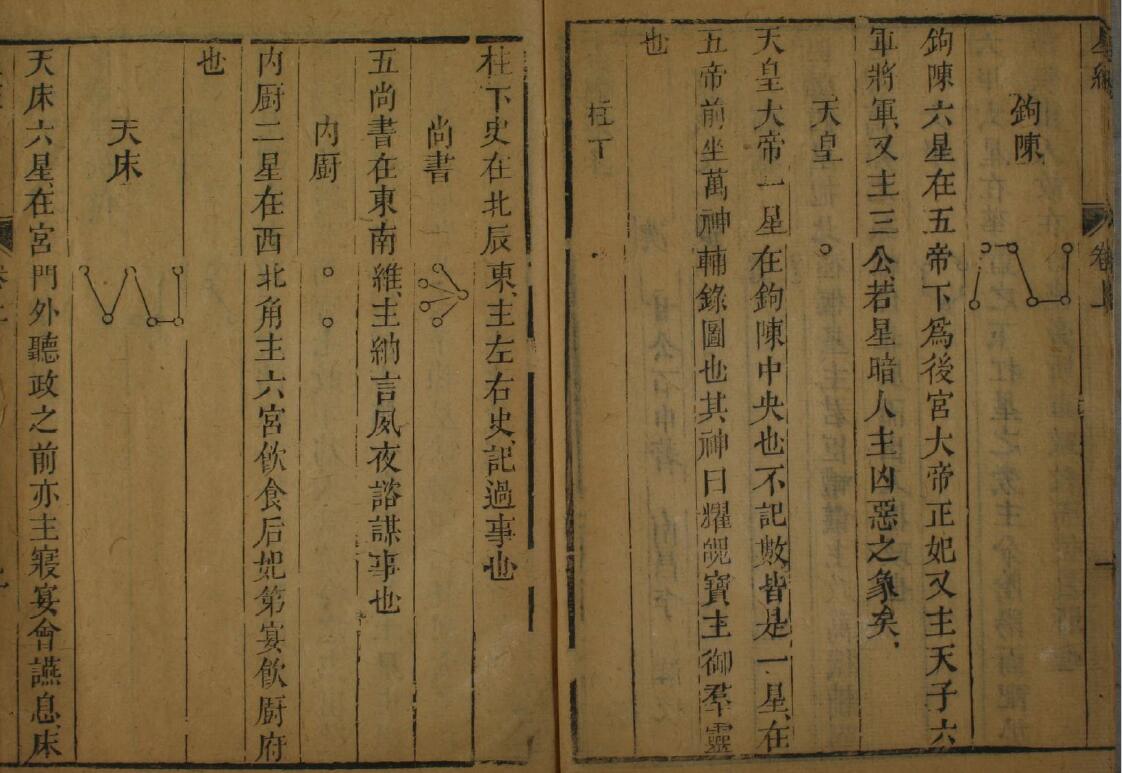 鉤陳
鉤陳六星在五帝下爲後宮大帝正妃又主天子六
軍將軍又主三公若星暗人主凶惡之象矣
天皇
天皇大帝一星在鉤陳中央也不記數皆是一星在
五帝前坐萬神輔錄圖也其神曰耀魄寶主御羣靈
也
柱下
柱下史在北辰東主左右史記過事也
尚書
五尚書在東南維主納言夙夜諮謀事也
内厨
内厨二星在西北角主六宮飲食后妃第宴飲厨府
也
天床
天床六星在宮門外聽政之前亦主寢宴會讌息床